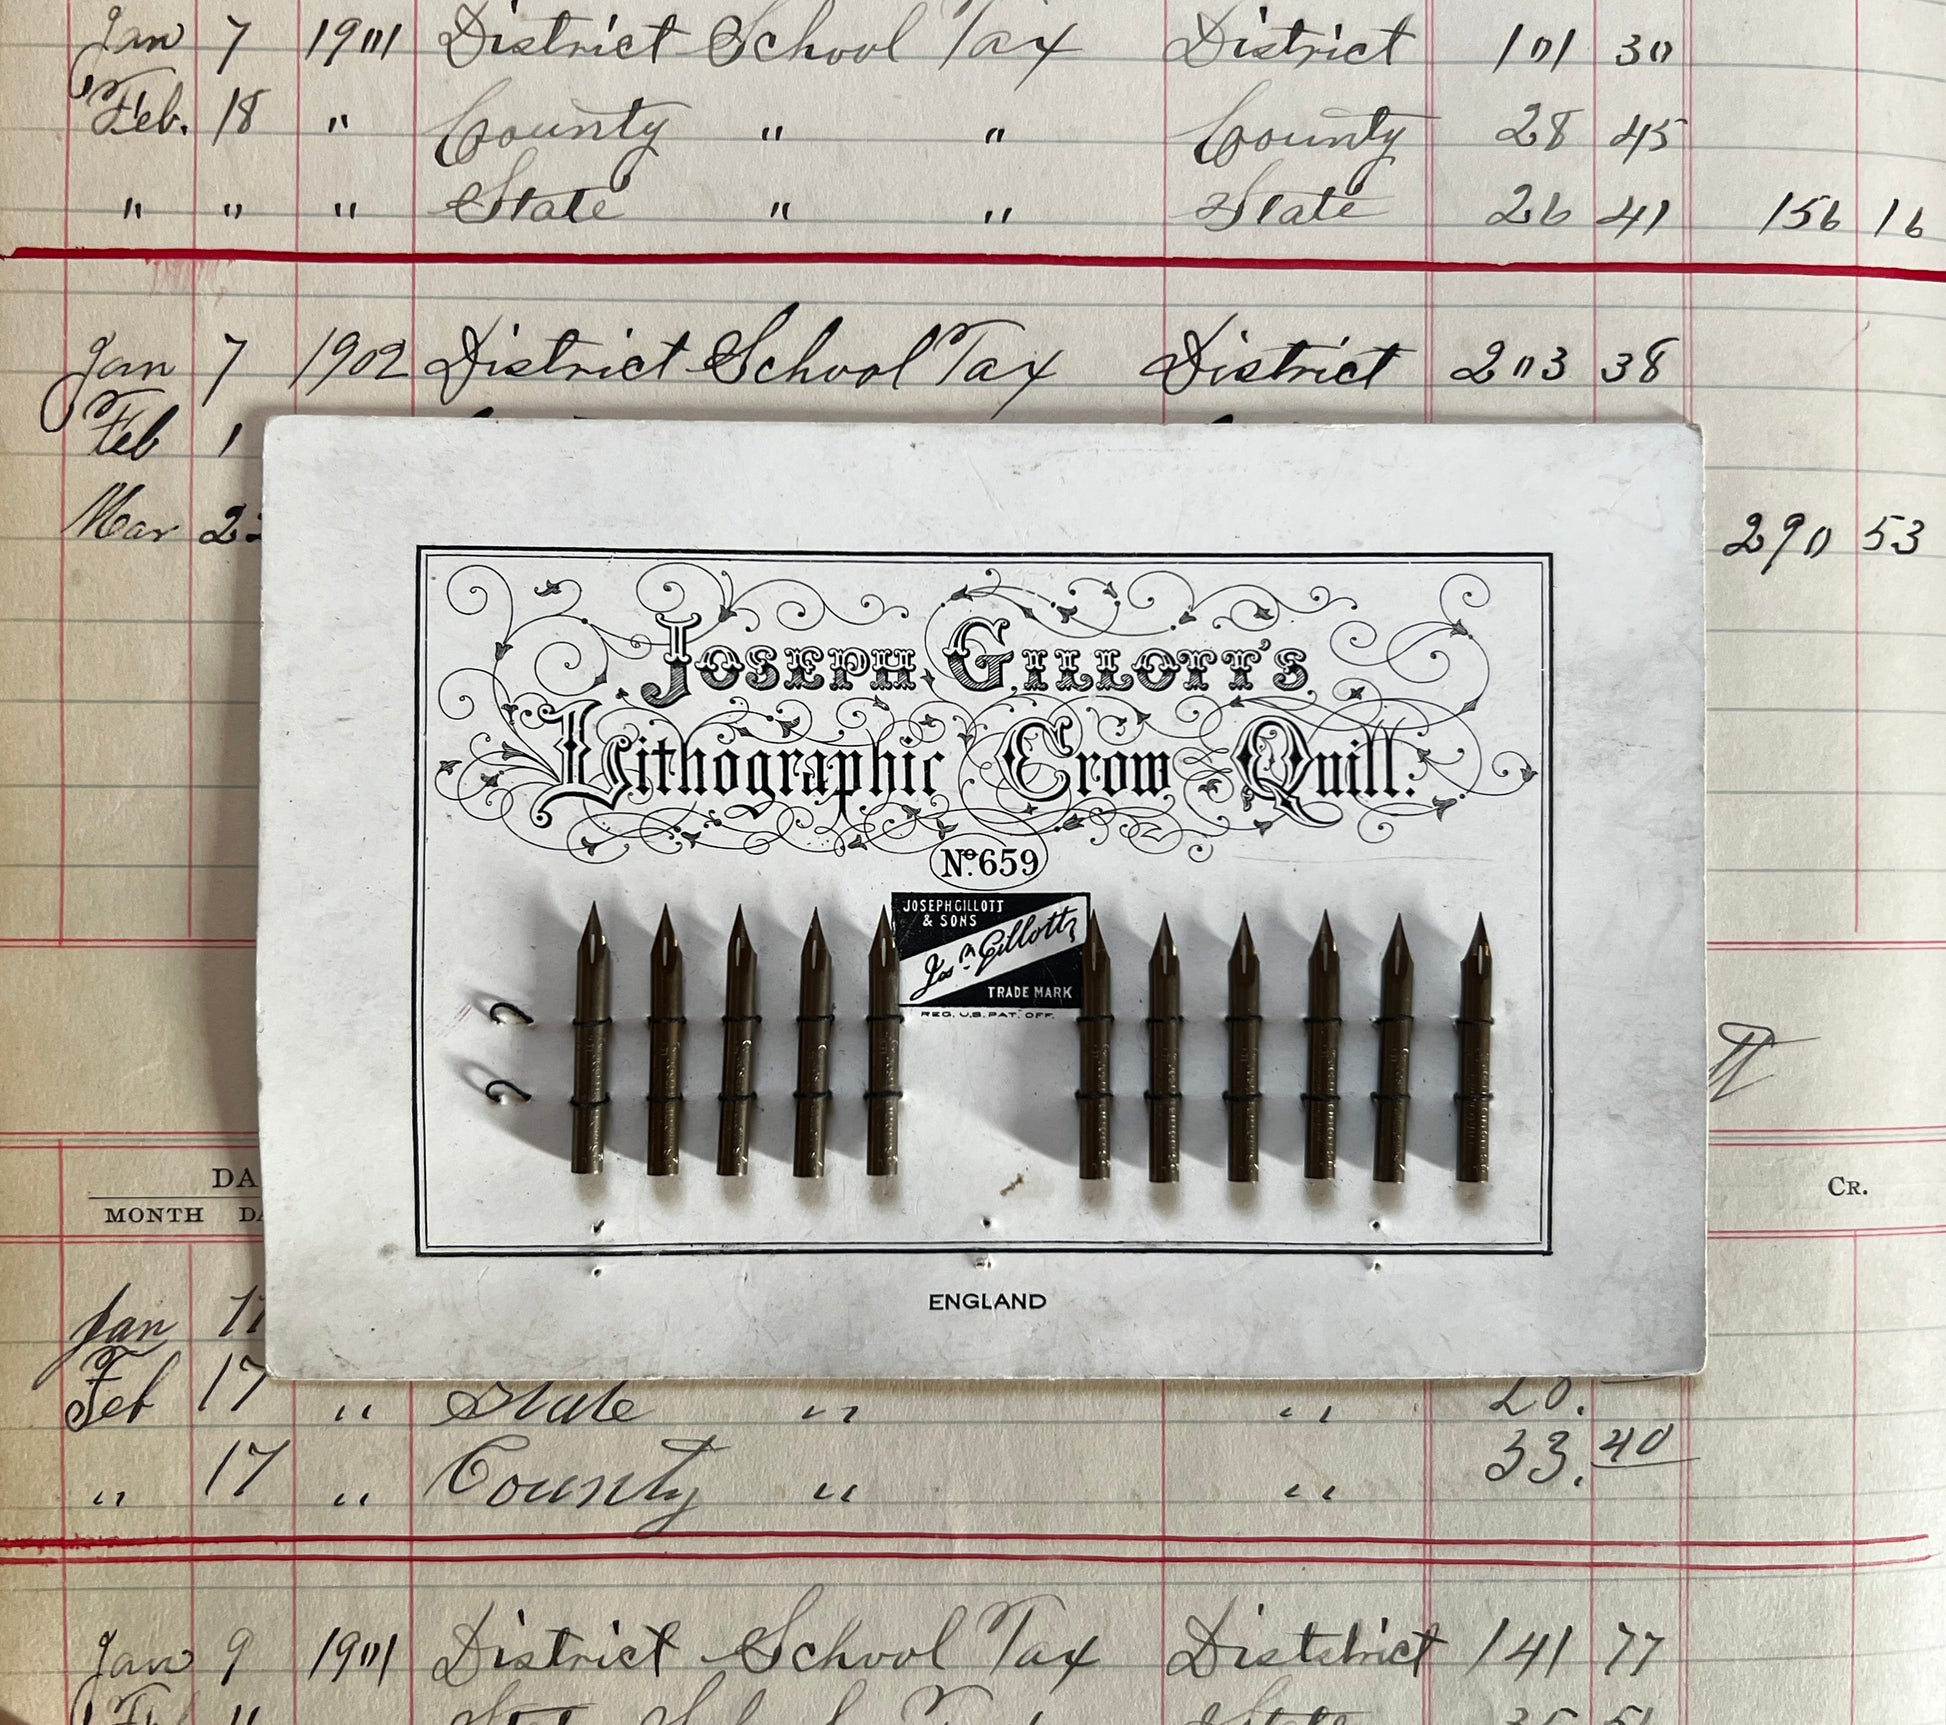 Jan 7 1901 District School Tax District 101 30
Feb. 18 " County " " County 28 45
" " " State " " State 26 41 156 16
Jan 7 1902 District School Tax District 203 38
Feb 1
Mar 2
290 53
JOSEPH GILLOTT'S
Lithographic Crow Quill.
No. 659
JOSEPH GILLOTT
& SONS
Jos. Gillott
TRADE MARK
REG. U.S. PAT. OFF.
ENGLAND
DA
MONTH DA
CR.
Jan 17
Feb 17 " State " " 20.
" 17 " County " " 33.40
Jan 9 1901 District School Tax Diststrict 141 77